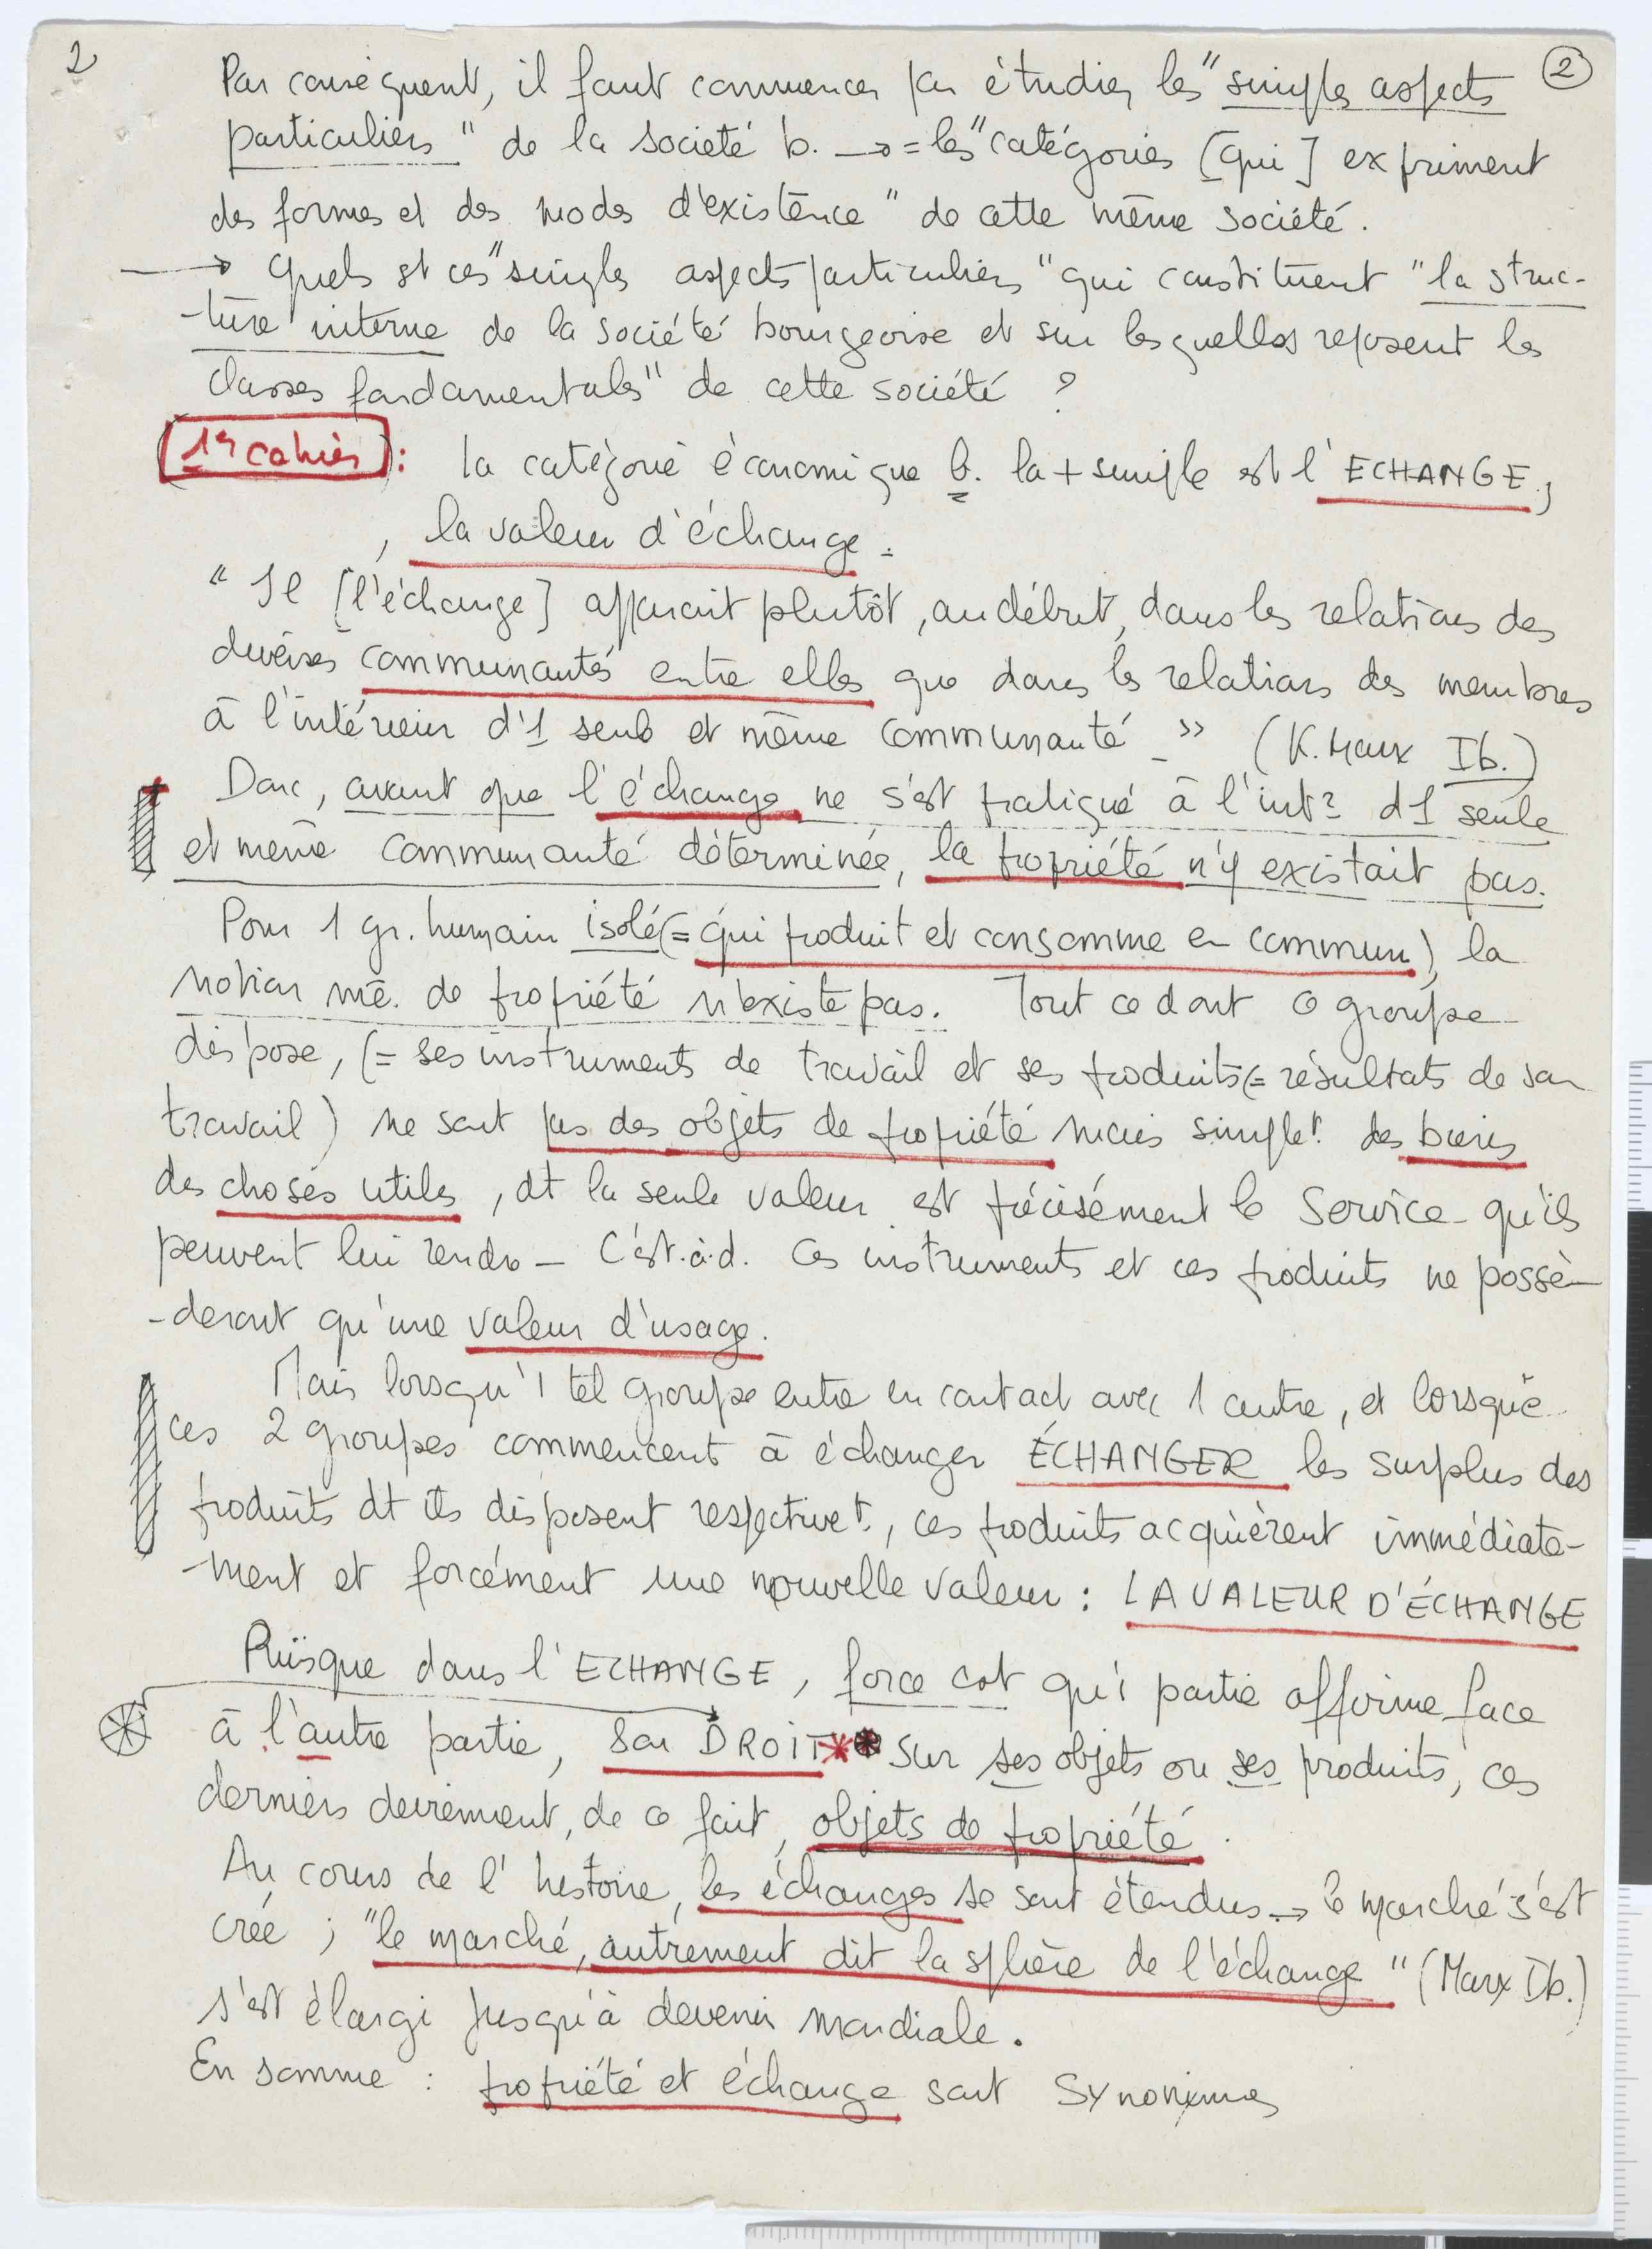 2
②
Par conséquent, il faut commencer par étudier les "simples aspects
particuliers" de la société b. → = les "catégories [qui] expriment
des formes et des modes d'existence" de cette même société.
→ Quels st ces "simples aspects particuliers" qui constituent "la struc-
-ture interne de la société bourgeoise et sur lesquelles reposent les
classes fondamentales" de cette société ?
1er cahier : la catégorie économique b. la + simple est l'ECHANGE,
, la valeur d'échange.
"Il [l'échange] apparait plutôt, au début, dans les relations des
diverses communautés entre elles que dans les relations des membres
à l'intérieur d'1 seule et même communauté." (K. Marx Ib.)
Donc, avant que l'échange ne s'est pratiqué à l'intr d'1 seule
et même communauté déterminée, la propriété n'y existait pas.
Pour 1 gr. humain isolé (= qui produit et consomme en commun), la
notion mê. de propriété n'existe pas. Tout ce dont ce groupe
dispose, (= ses instruments de travail et ses produits (= résultats de son
travail) ne sont pas des objets de propriété mais simplet. des biens
des choses utiles, dt la seule valeur est précisément le service qu'ils
peuvent lui rendre – C'est.à.d. ces instruments et ces produits ne possè-
-deront qu'une valeur d'usage.
Mais lorsqu'1 tel groupe entre en contact avec 1 autre, et lorsque
ces 2 groupes commencent à échanger ÉCHANGER les surplus des
produits dt ils disposent respectivet., ces produits acquièrent immédiate-
-ment et forcément une nouvelle valeur : LA VALEUR D'ÉCHANGE
Puisque dans l'ECHANGE, force est qu'1 partie affirme face
à l'autre partie, son DROIT** sur ses objets ou ses produits, ces
derniers deviennent, de ce fait, objets de propriété.
Au cours de l'histoire, les échanges se sont étendus → le marché s'est
créé ; "le marché, autrement dit la sphère de l'échange" (Marx Ib.)
s'est élargi jusqu'à devenir mondiale.
En somme : propriété et échange sont synonymes